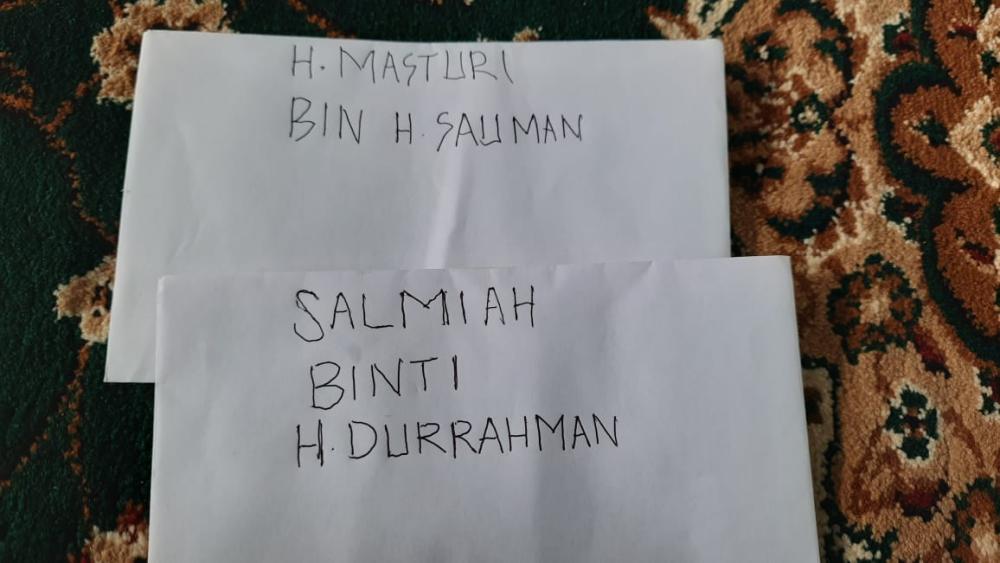 H. MASTURI
BIN H. SALIMAN
SALMIAH
BINTI
H. DURRAHMAN